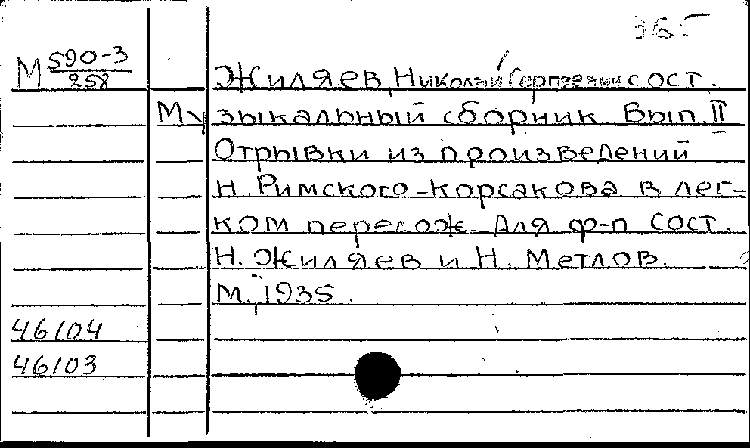 365
М 590-3
258
Жиляев, Николай Сергеевич сост.
Музыкальный сборник. Вып. II
Отрывки из произведений
Н. Римского-Корсакова в лег-
ком перелож. для ф-п сост.
Н. Жиляев и Н. Метлов.
М., 1935.
46104
46103